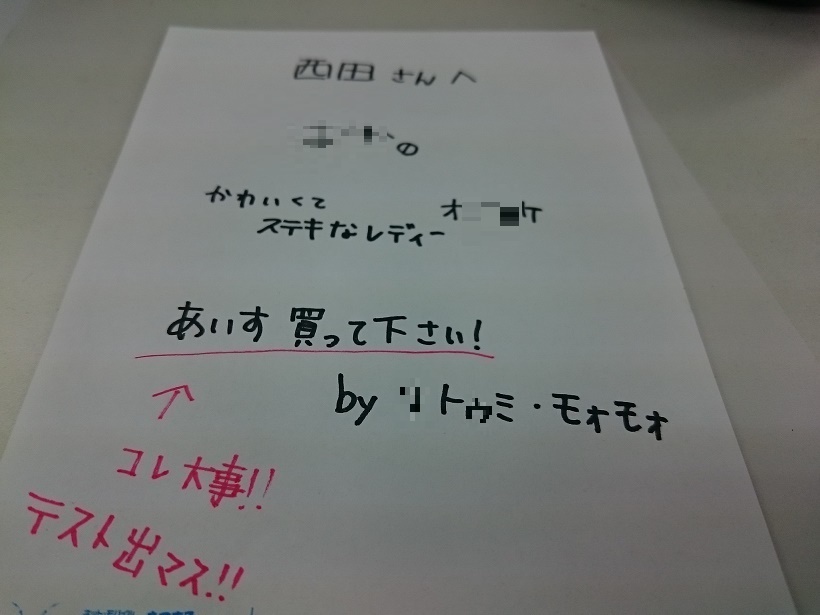 西田さんへ
の
かわいくて
ステキなレディー
あいす買って下さい!
by トゥミ・モォモォ
コレ大事!!
テスト出マス!!